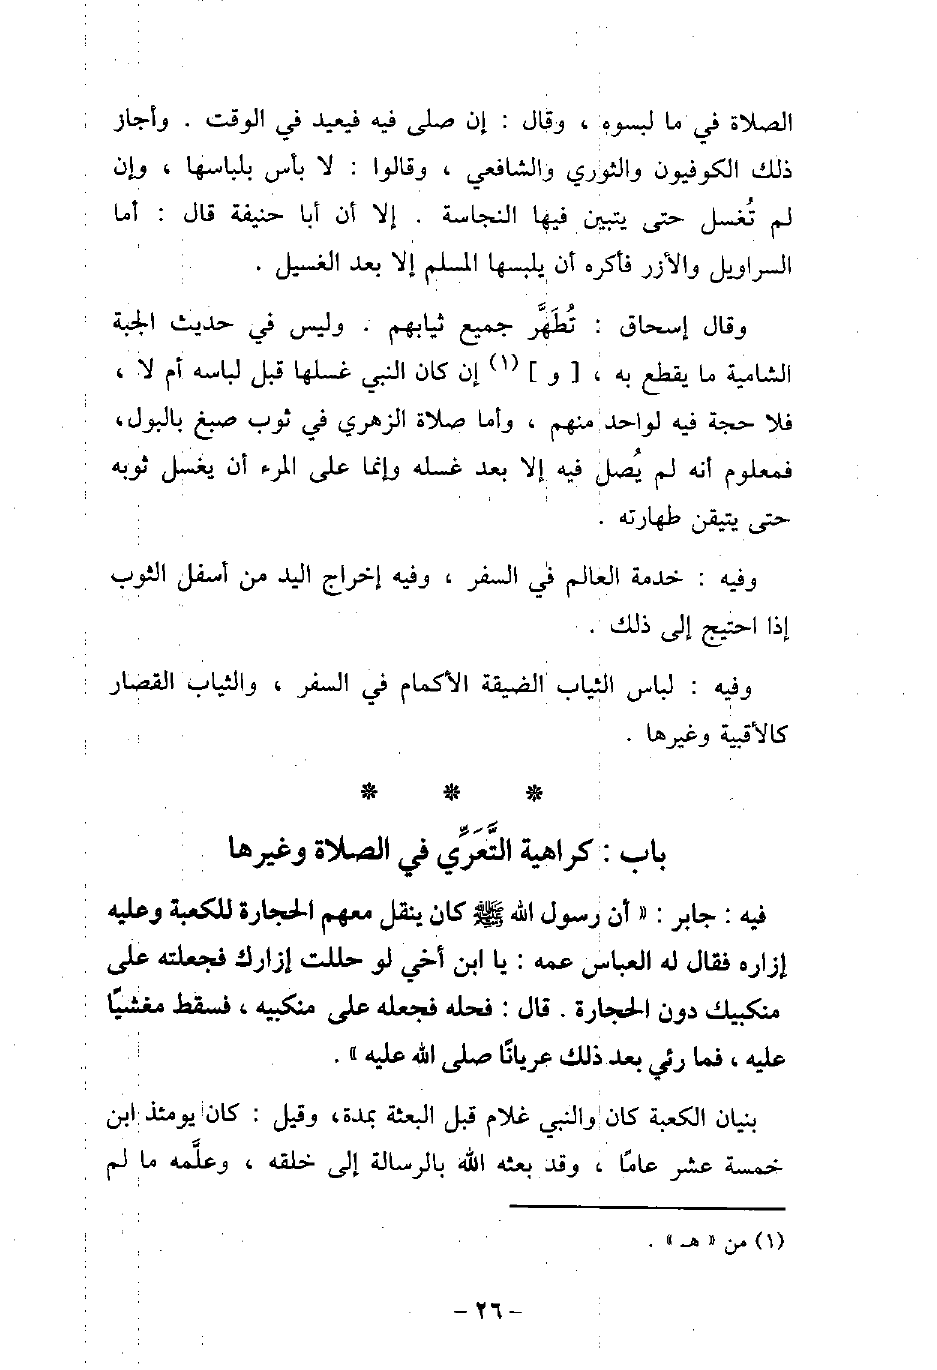 الصلاة في ما لبسوه ، وقال : إن صلى فيه فيعيد في الوقت . وأجاز
ذلك الكوفيون والثوري والشافعي ، وقالوا : لا بأس بلباسها ، وإن
لم تُغسل حتى يتبين فيها النجاسة . إلا أن أبا حنيفة قال : أما
السراويل والأزر فأكره أن يلبسها المسلم إلا بعد الغسيل .
وقال إسحاق : تُطَهَّر جميع ثيابهم . وليس في حديث الجبة
الشامية ما يقطع به ، [ و ] (١) إن كان النبي غسلها قبل لباسه أم لا ،
فلا حجة فيه لواحد منهم ، وأما صلاة الزهري في ثوب صبغ بالبول،
فمعلوم أنه لم يُصل فيه إلا بعد غسله وإنما على المرء أن يغسل ثوبه
حتى يتيقن طهارته .
وفيه : خدمة العالم في السفر ، وفيه إخراج اليد من أسفل الثوب
إذا احتيج إلى ذلك .
وفيه : لباس الثياب الضيقة الأكمام في السفر ، والثياب القصار
كالأقبية وغيرها .
* * *
باب : كراهية التَّعَرِّي في الصلاة وغيرها
فيه : جابر : « أن رسول الله ﷺ كان ينقل معهم الحجارة للكعبة وعليه
إزاره فقال له العباس عمه : يا ابن أخي لو حللت إزارك فجعلته على
منكبيك دون الحجارة . قال : فحله فجعله على منكبيه ، فسقط مغشيًا
عليه ، فما رئي بعد ذلك عريانًا صلى الله عليه » .
بنيان الكعبة كان والنبي غلام قبل البعثة بمدة، وقيل : كان يومئذ ابن
خمسة عشر عامًا ، وقد بعثه الله بالرسالة إلى خلقه ، وعلَّمه ما لم
(١) من « هـ » .
- ٢٦ -